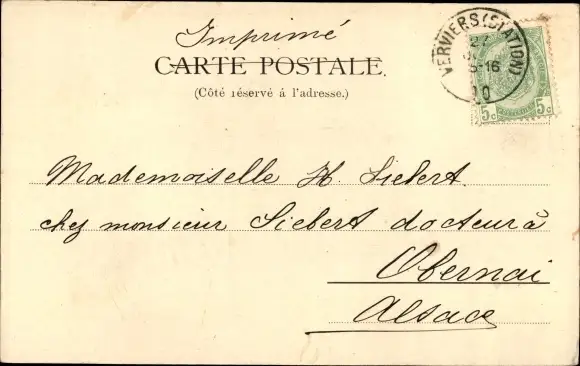 Imprimé
CARTE POSTALE.
(Côté réservé à l'adresse.)
VERVIERS (STATION)
27
5-16
00
5c 5c
Mademoiselle H. Siebert
chez monsieur Siebert docteur à
Obernai
Alsace